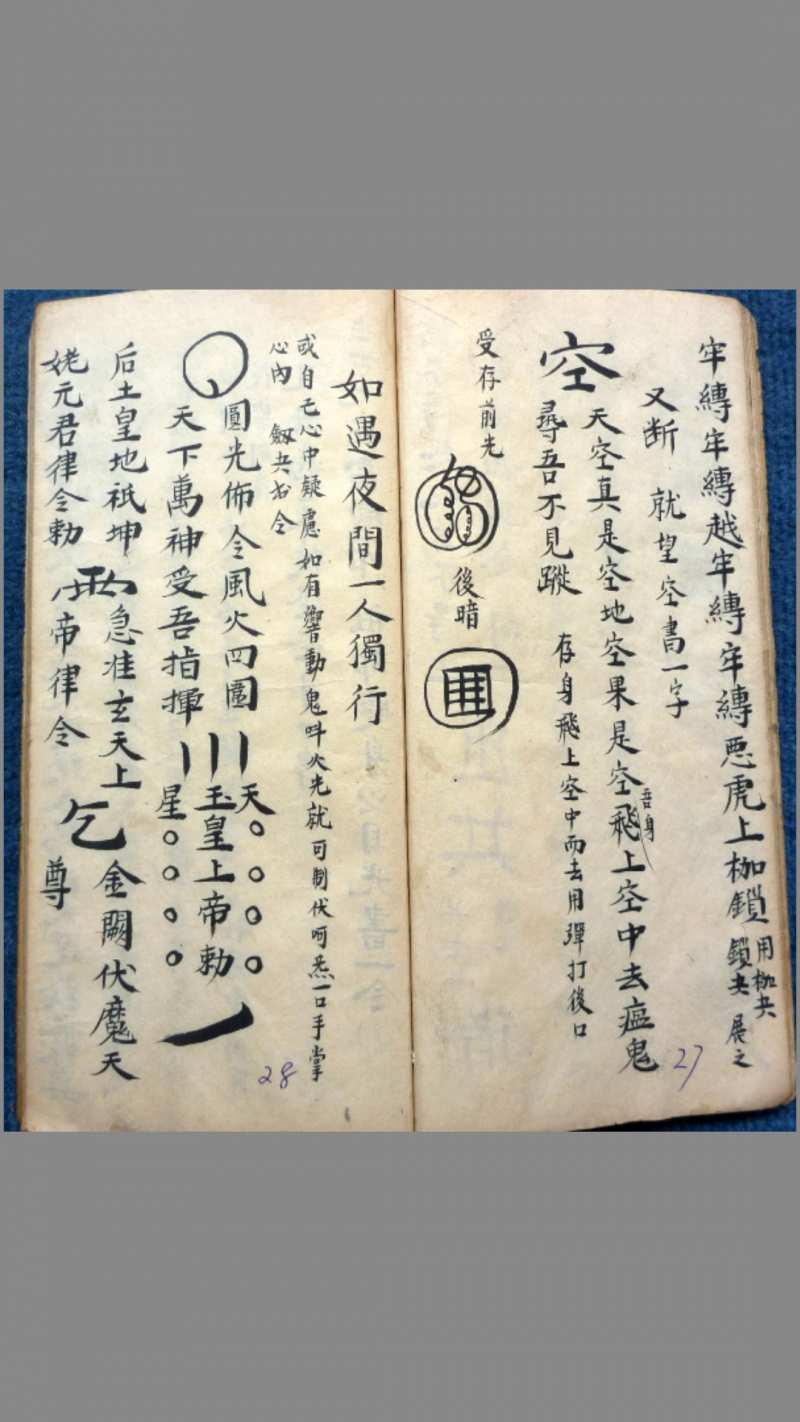 牢縛牢縛越牢縛牢縛悪虎上枷鎖
用枷夬
鎖夬 展之
又断 就望空書一字
空
天空真是空地空果是空飛上空中去瘟鬼
吾身
尋吾不見蹤
存身飛上空中而去用弾打後口
受存前先
後暗
27
如遇夜間一人獨行
或自己心中疑慮如有響動鬼呌火光就可制伏呵炁一口手掌
心内 劔夬书令
圓光佈令風火四圍
天下萬神受吾指揮
天
玉皇上帝勅
星
后土皇地祇坤
急准玄天上
金闕伏魔天
姥元君律令勅
帝律令
尊
28